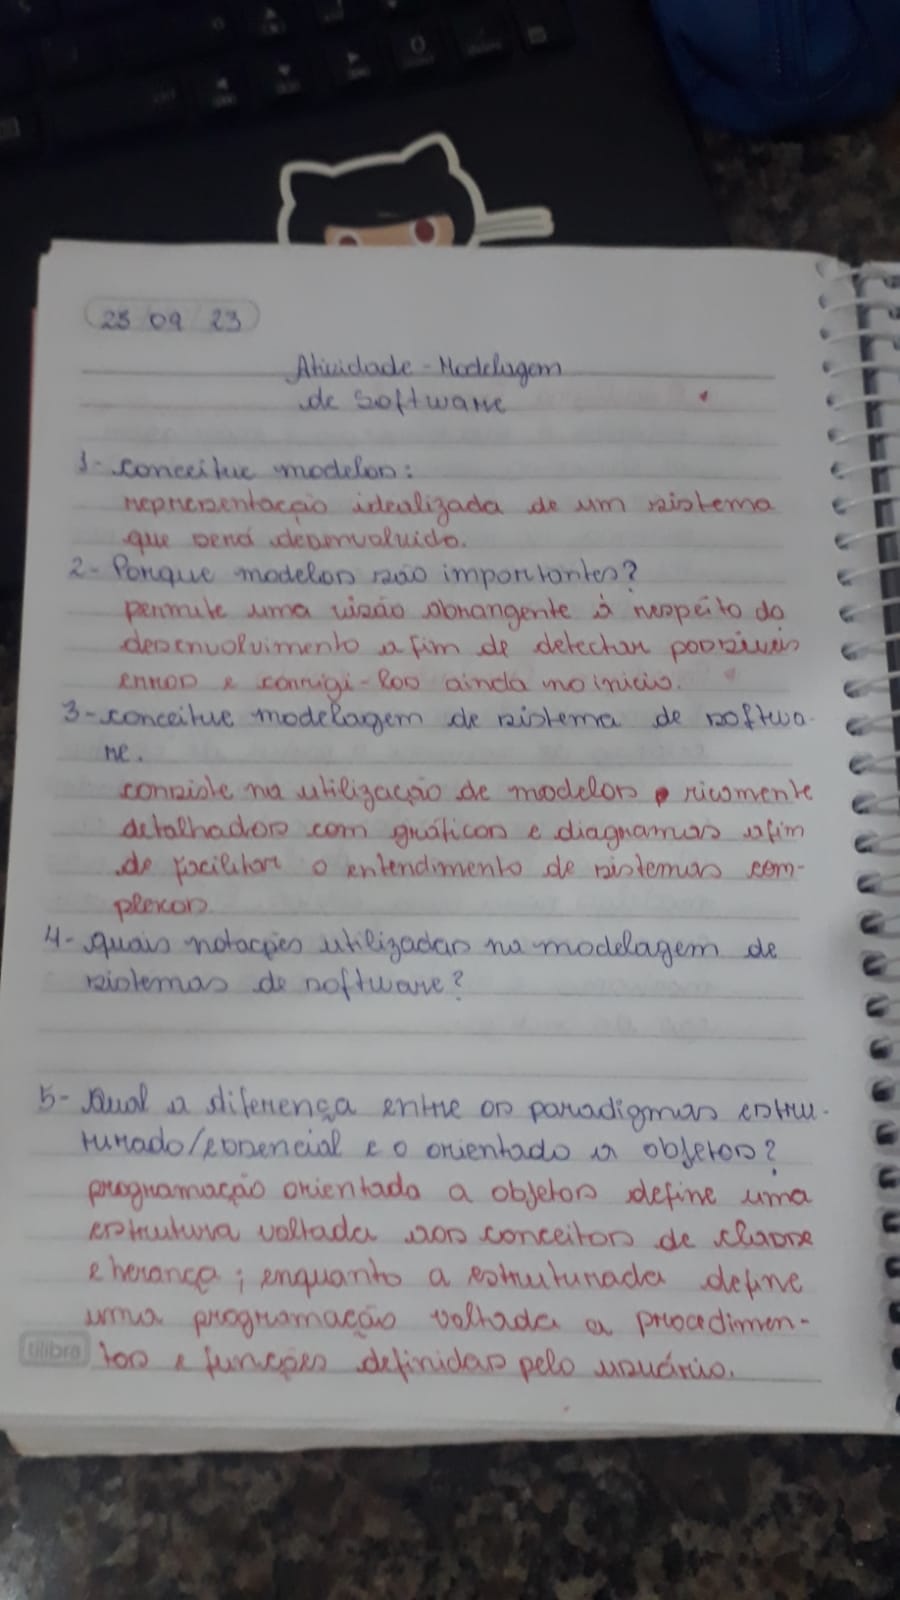 25 09 23
Atividade - Modelagem
de Software
1- conceitue modelos:
representação idealizada de um sistema
que será desenvolvido.
2- Porque modelos são importantes?
permite uma visão abrangente à respeito do
desenvolvimento a fim de detectar possíveis
erros e corrigi-los ainda no inicio.
3- conceitue modelagem de sistema de softwa-
re.
consiste na utilização de modelos ricamente
detalhados com gráficos e diagramas afim
de facilitar o entendimento de sistemas com-
plexos
4- quais notações utilizadas na modelagem de
sistemas de software?
5- Qual a diferença entre os paradigmas estru-
turado/essencial e o orientado a objetos?
programação orientada a objetos define uma
estrutura voltada aos conceitos de classe
e herança; enquanto a estruturada define
uma programação voltada a procedimen-
tos e funções definidas pelo usuário.
tilibra